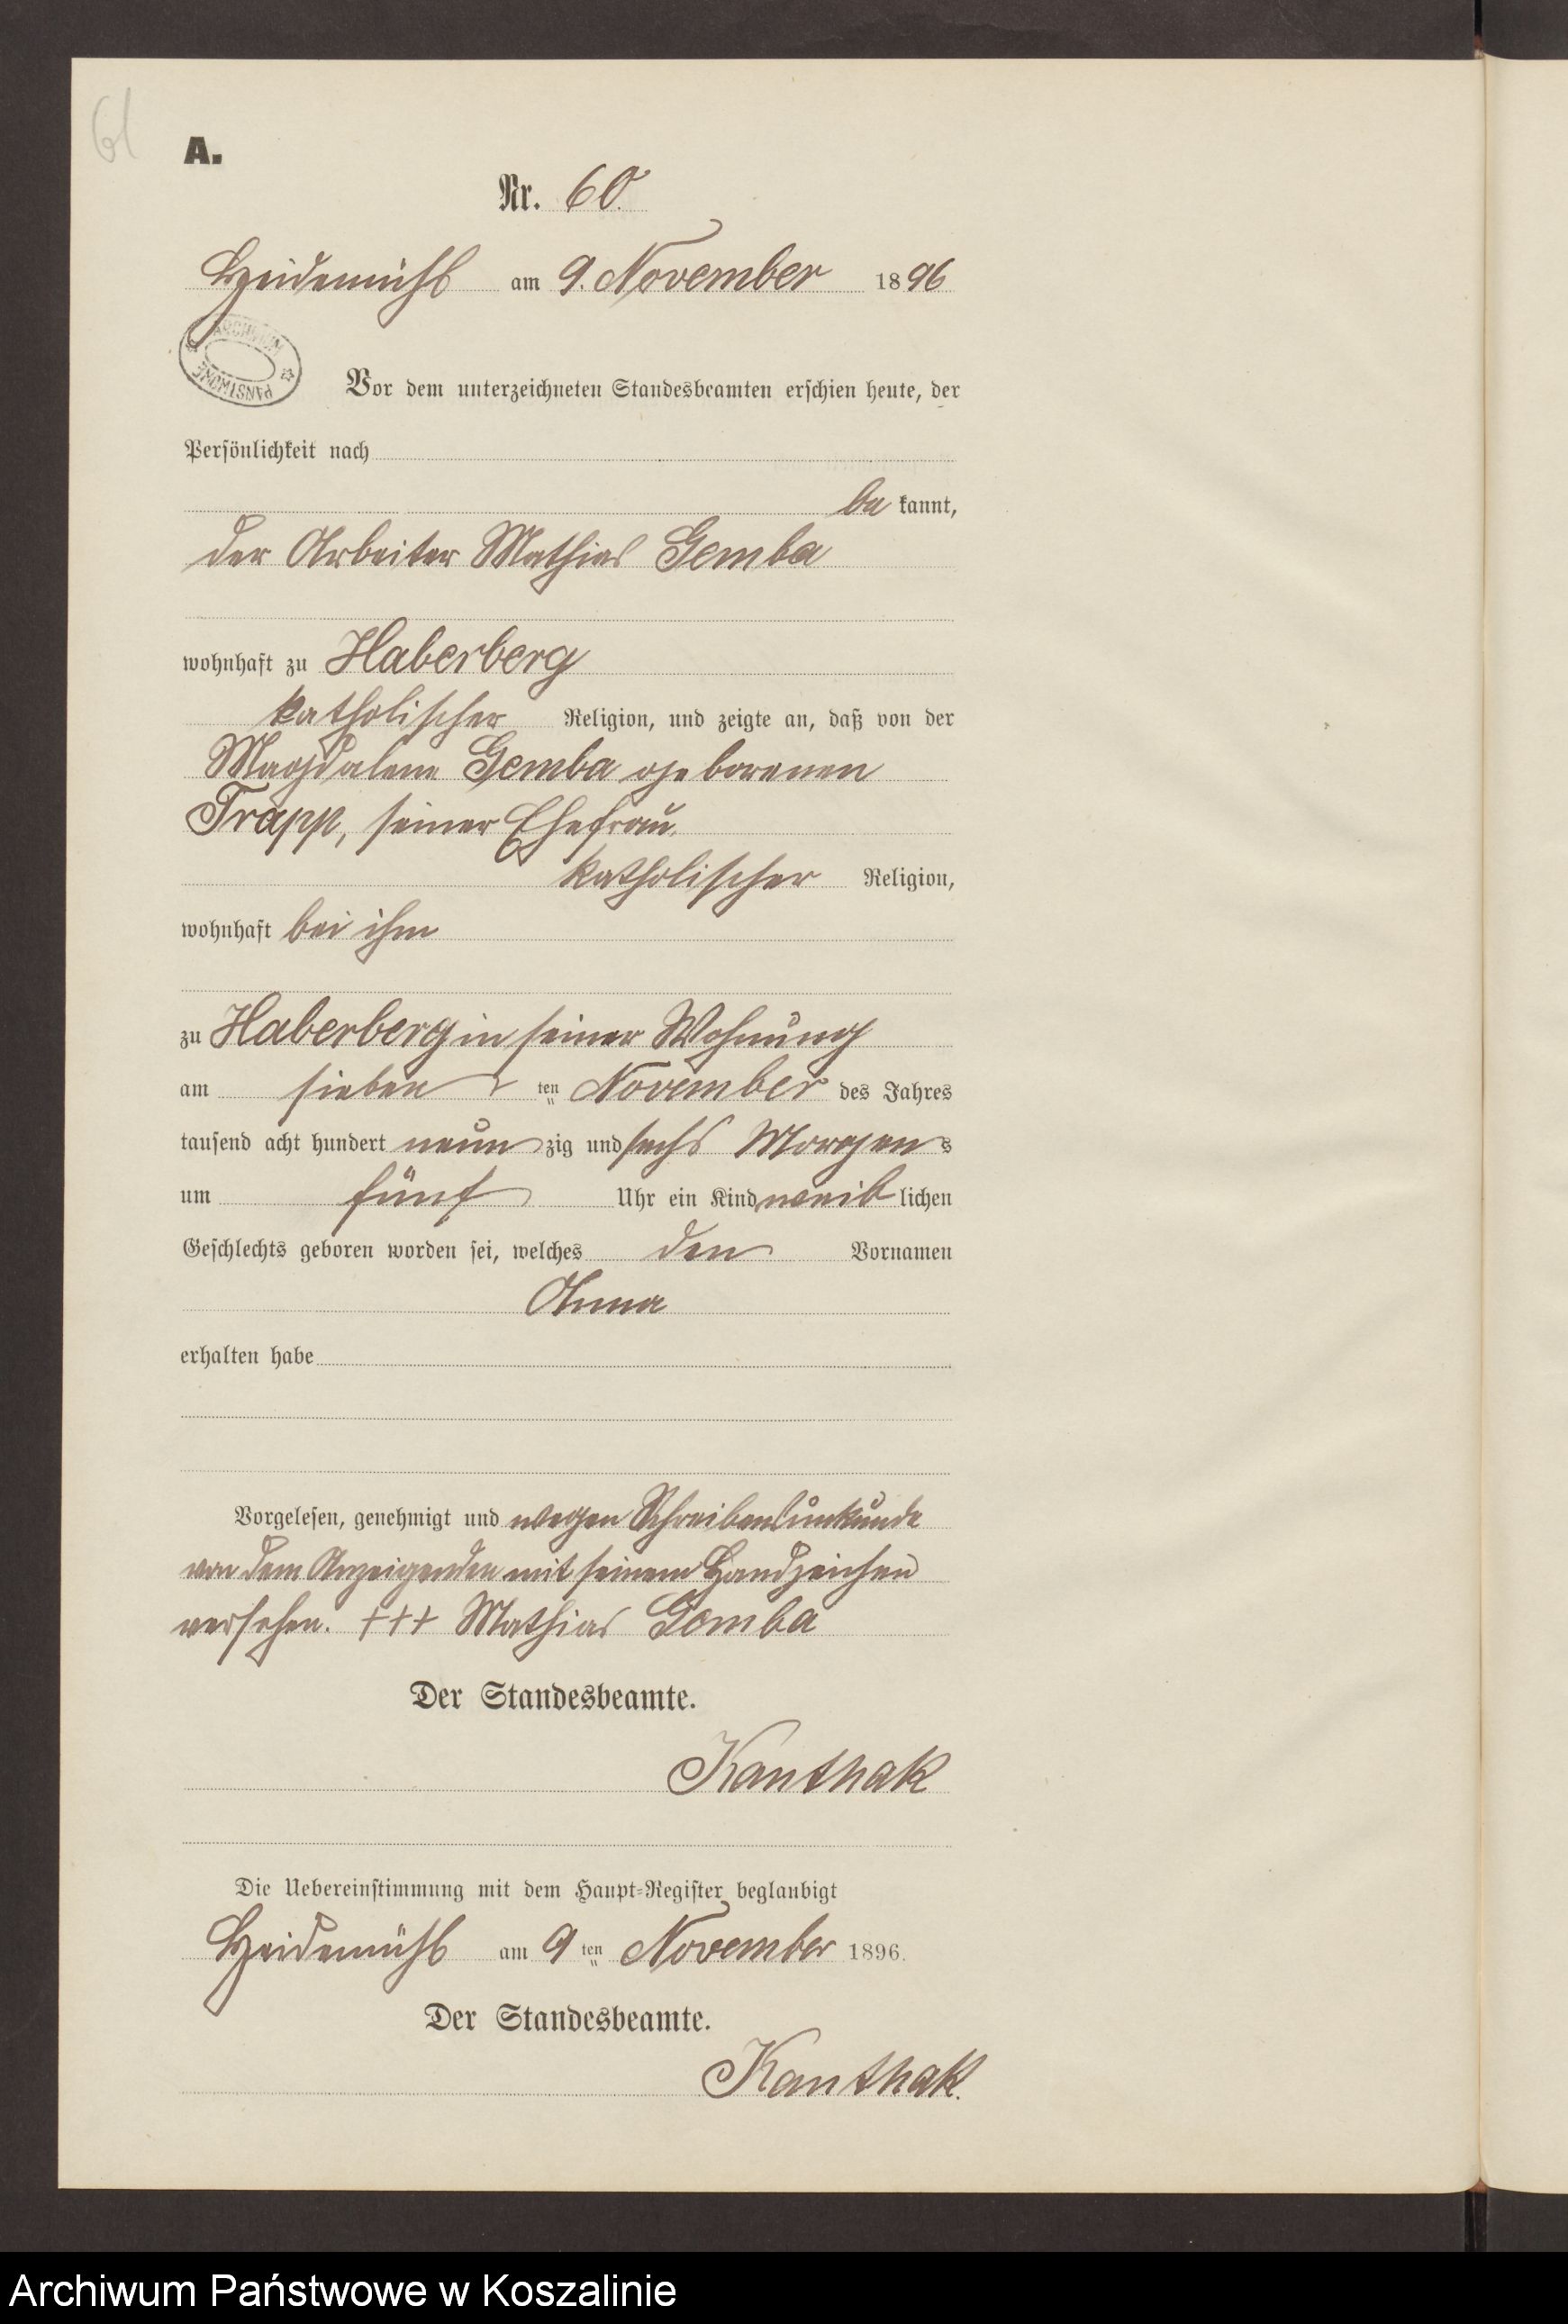 61
A.
Nr. 60.
Heidemühl am 9. November 1896
ARCHIWUM PAŃSTWOWE
Vor dem unterzeichneten Standesbeamten erschien heute, der
Persönlichkeit nach
bekannt,
der Arbeiter Mathias Gemba
wohnhaft zu Haberberg
katholischer Religion, und zeigte an, daß von der
Magdalena Gemba geborenen
Trapp, seiner Ehefrau,
katholischer Religion,
wohnhaft bei ihm
zu Haberberg in seiner Wohnung
am sieben ten November des Jahres
tausend acht hundert neunzig und sechs Morgens
um fünf Uhr ein Kind weiblichen
Geschlechts geboren worden sei, welches den Vornamen
Anna
erhalten habe
Vorgelesen, genehmigt und wegen Schreibensunkunde
von dem Anzeigenden mit seinem Handzeichen
versehen. +++ Mathias Gemba
Der Standesbeamte.
Kanthak
Die Uebereinstimmung mit dem Haupt-Register beglaubigt
Heidemühl am 9ten November 1896.
Der Standesbeamte.
Kanthak.
Archiwum Państwowe w Koszalinie